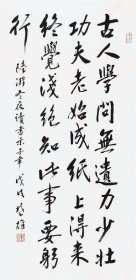 古人學問無遺力少壯
功夫老始成紙上得來
終覺淺絕知此事要躬
行
陸游冬夜讀書示子聿 戊戌